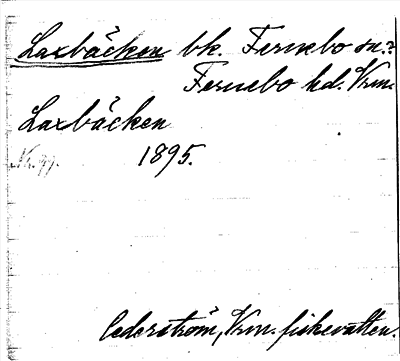 Laxbäcken bk. Fernebo sn.?
Fernebo hd. Vrm.
Laxbäcken
1895.
Cederström, Vrm. fiskevatten.